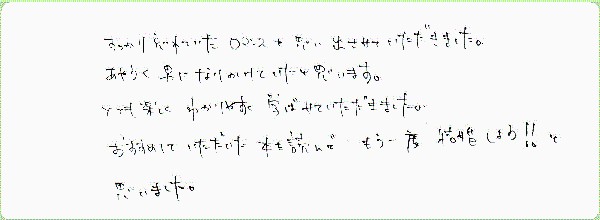 すっかり忘れていた ことも 思い出させていただきました。
あやうく 男になりかけていたと思います。
とても楽しく わかりやすく 学ばせていただきました。
おすすめして いただいた 本も読んで もう一度 結婚しよう!! と
思いました。